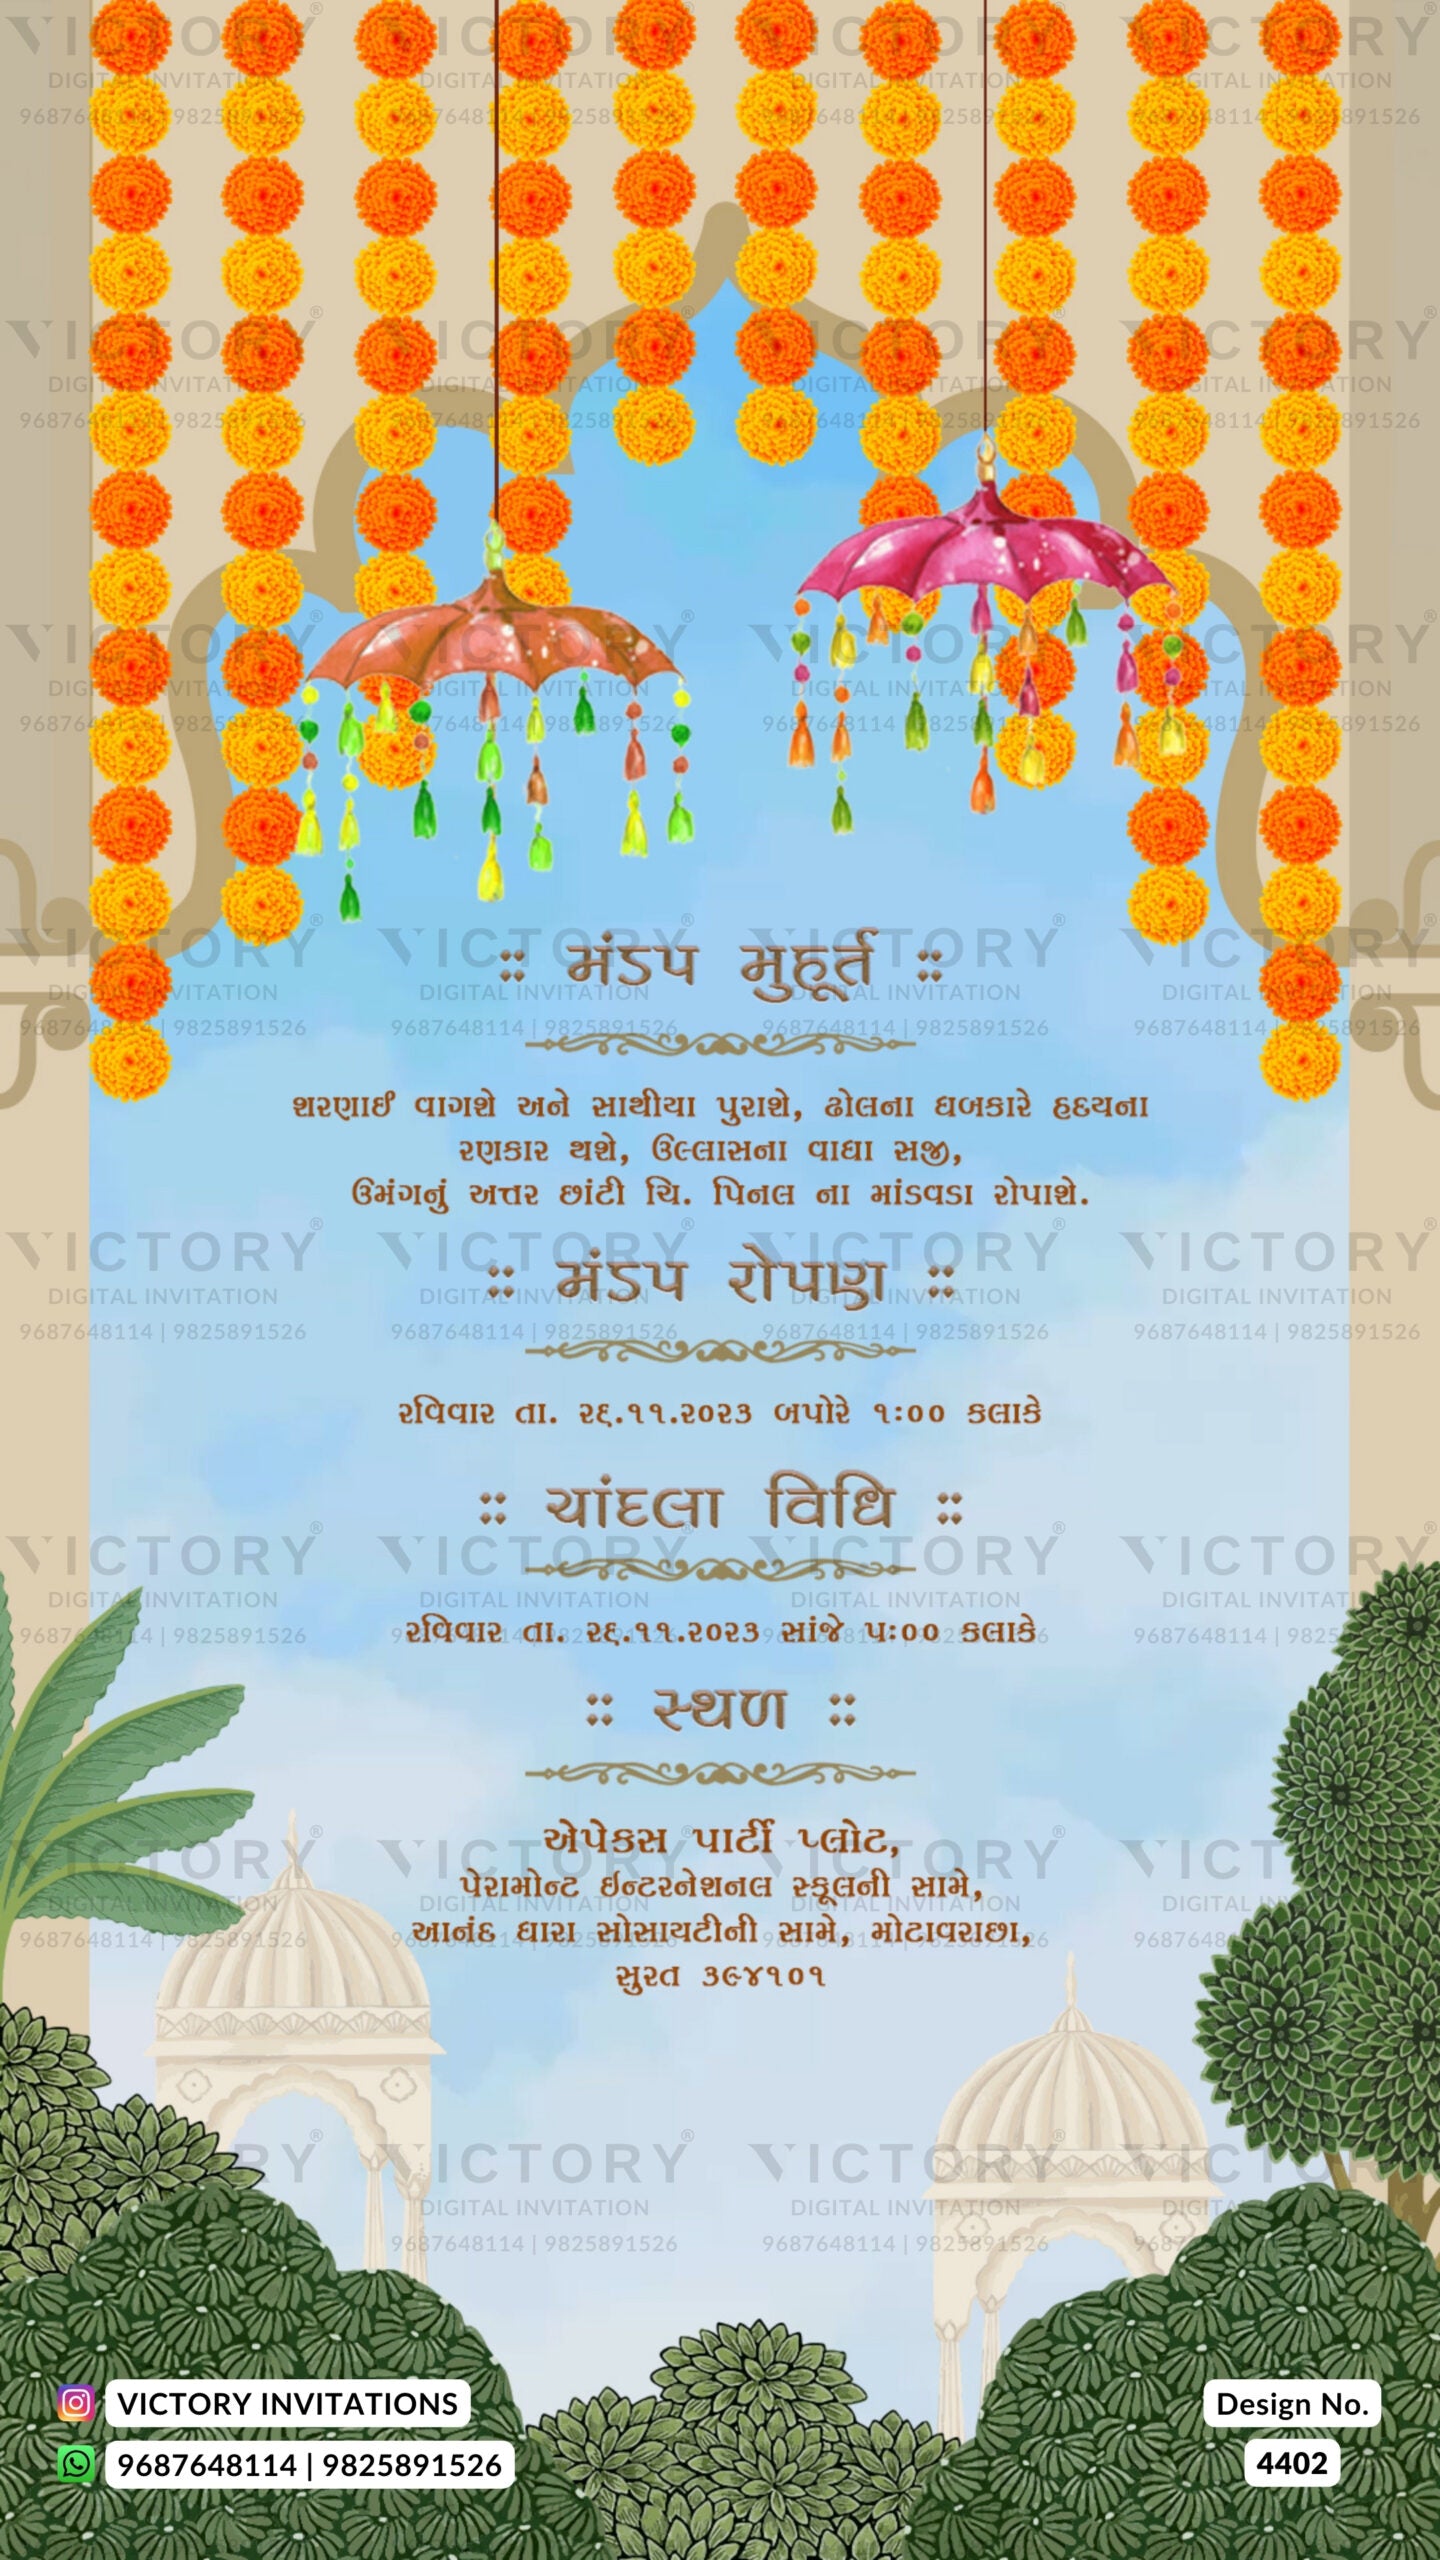 :: મંડપ મુહૂર્ત ::
શરણાઈ વાગશે અને સાથીયા પુરાશે, ઢોલના ધબકારે હૃદયના
રણકાર થશે, ઉલ્લાસના વાઘા સજી,
ઉમંગનું અત્તર છાંટી ચિ. પિનલ ના માંડવડા રોપાશે.
:: મંડપ રોપણ ::
રવિવાર તા. ૨૬.૧૧.૨૦૨૩ બપોરે ૧:૦૦ કલાકે
:: ચાંદલા વિધિ ::
રવિવાર તા. ૨૬.૧૧.૨૦૨૩ સાંજે ૫:૦૦ કલાકે
:: સ્થળ ::
એપેકસ પાર્ટી પ્લોટ,
પેરામોન્ટ ઈન્ટરનેશનલ સ્કૂલની સામે,
આનંદ ધારા સોસાયટીની સામે, મોટાવરાછા,
સુરત ૩૯૪૧૦૧
VICTORY INVITATIONS
9687648114 | 9825891526
Design No.
4402
VICTORY®
DIGITAL INVITATION
9687648114 | 9825891526